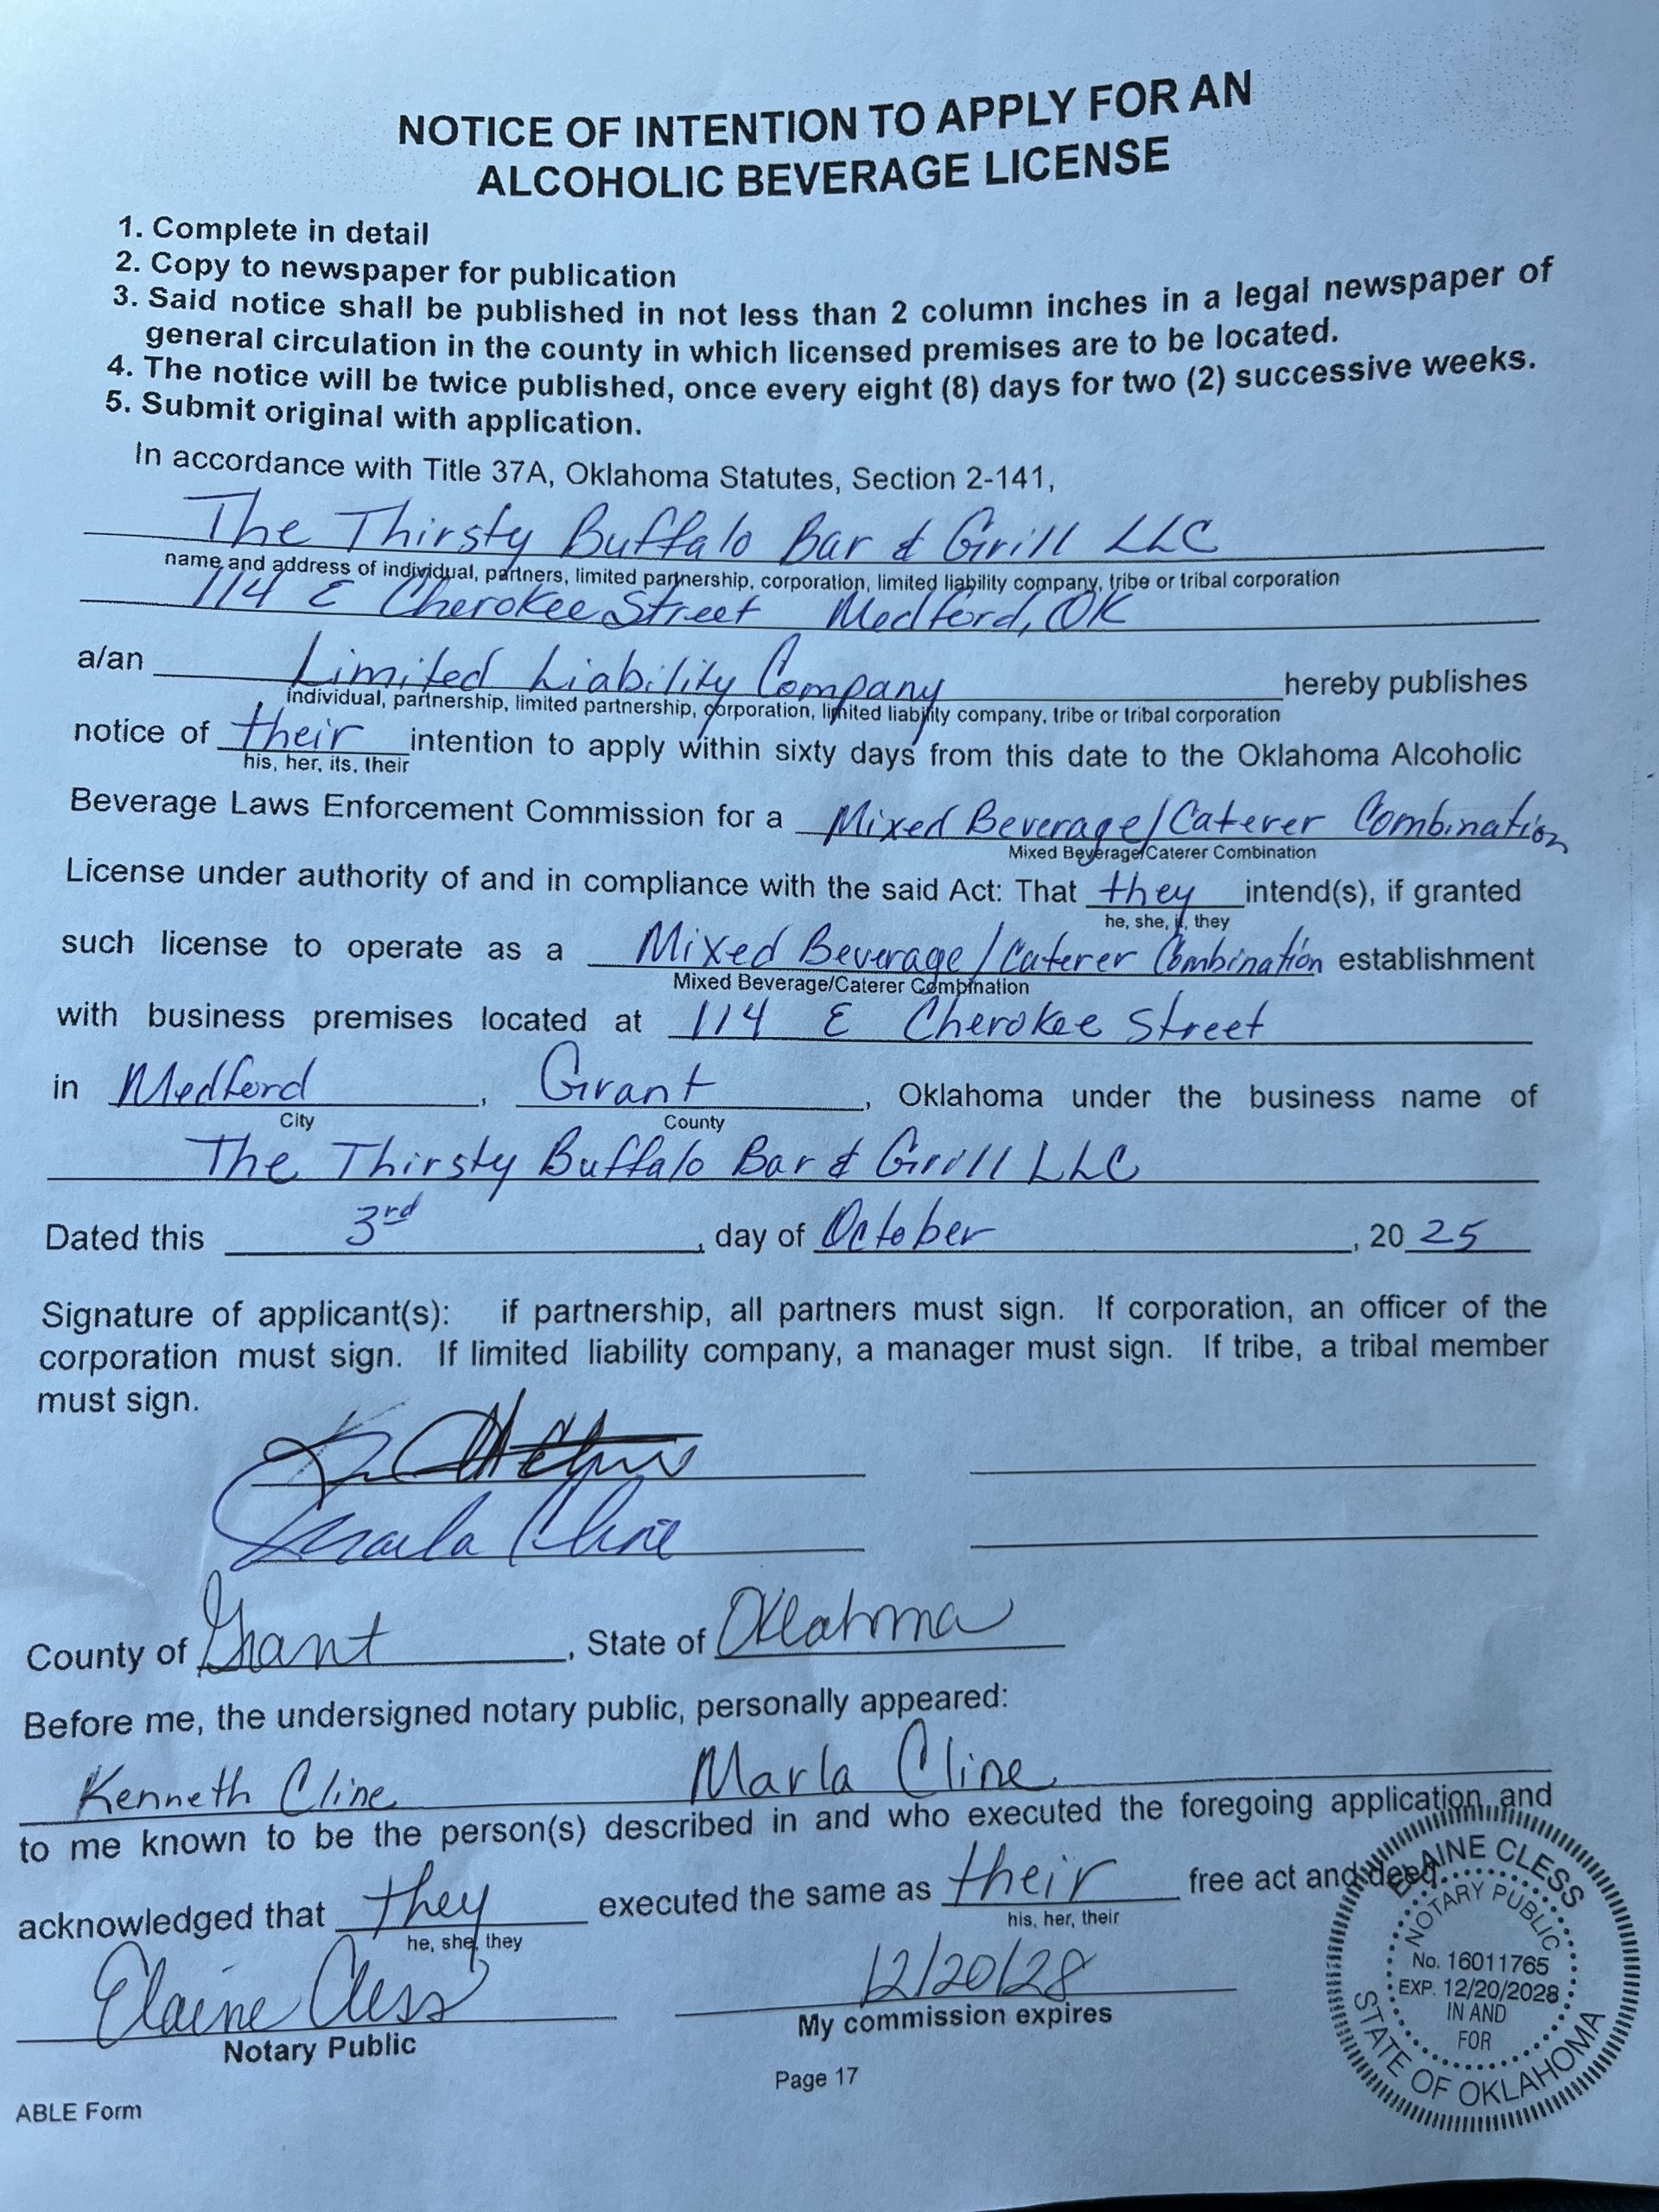 NOTICE OF INTENTION TO APPLY FOR AN
ALCOHOLIC BEVERAGE LICENSE
1. Complete in detail
2. Copy to newspaper for publication
3. Said notice shall be published in not less than 2 column inches in a legal newspaper of
general circulation in the county in which licensed premises are to be located.
4. The notice will be twice published, once every eight (8) days for two (2) successive weeks.
5. Submit original with application.
In accordance with Title 37A, Oklahoma Statutes, Section 2-141,
The Thirsty Buffalo Bar & Grill LLC
name and address of individual, partners, limited partnership, corporation, limited liability company, tribe or tribal corporation
114 E Cherokee Street Medford, OK
a/an Limited Liability Company hereby publishes
individual, partnership, limited partnership, corporation, limited liability company, tribe or tribal corporation
notice of their intention to apply within sixty days from this date to the Oklahoma Alcoholic
his, her, its, their
Beverage Laws Enforcement Commission for a Mixed Beverage/Caterer Combination
Mixed Beverage/Caterer Combination
License under authority of and in compliance with the said Act: That they intend(s), if granted
he, she, it, they
such license to operate as a Mixed Beverage/Caterer Combination establishment
Mixed Beverage/Caterer Combination
with business premises located at 114 E Cherokee Street
in Medford, Grant, Oklahoma under the business name of
City County
The Thirsty Buffalo Bar & Grill LLC
Dated this 3rd, day of October, 20 25
Signature of applicant(s): if partnership, all partners must sign. If corporation, an officer of the
corporation must sign. If limited liability company, a manager must sign. If tribe, a tribal member
must sign.
Marla Cline
County of Grant, State of Oklahoma
Before me, the undersigned notary public, personally appeared:
Kenneth Cline Marla Cline
to me known to be the person(s) described in and who executed the foregoing application and
acknowledged that they executed the same as their free act and deed.
he, she, they his, her, their
Elaine Cless 12/20/28
Notary Public My commission expires
ELAINE CLESS
NOTARY PUBLIC
No. 16011765
EXP. 12/20/2028
IN AND
FOR
STATE OF OKLAHOMA
Page 17
ABLE Form